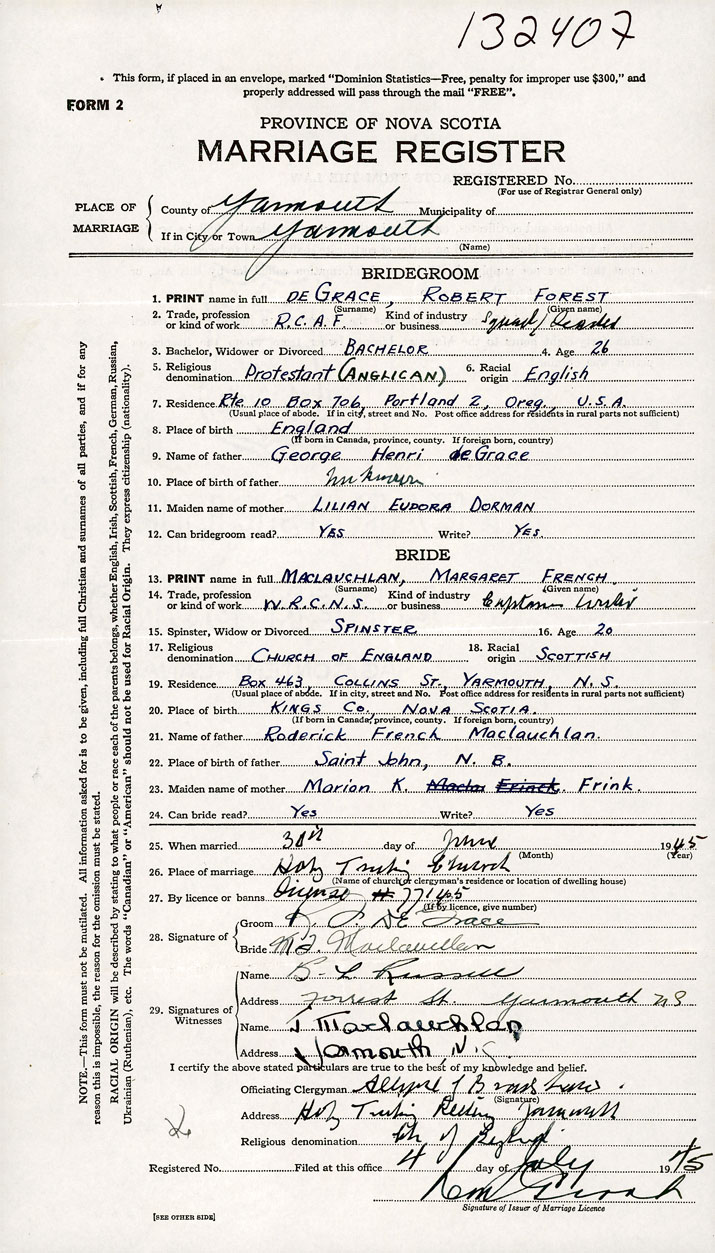 132407
• This form, if placed in an envelope, marked "Dominion Statistics—Free, penalty for improper use $300," and
properly addressed will pass through the mail "FREE".
FORM 2
PROVINCE OF NOVA SCOTIA
MARRIAGE REGISTER
REGISTERED No.
(For use of Registrar General only)
PLACE OF MARRIAGE
County of Yarmouth Municipality of
If in City or Town Yarmouth
(Name)
BRIDEGROOM
1. PRINT name in full DE GRACE, ROBERT FOREST
(Surname) (Given name)
2. Trade, profession or kind of work R.C.A.F. Kind of industry or business Squad/Leader
3. Bachelor, Widower or Divorced BACHELOR 4. Age 26
5. Religious denomination Protestant (ANGLICAN) 6. Racial origin English
7. Residence Rte 10 Box 706, Portland 2, Oreg., U.S.A.
(Usual place of abode. If in city, street and No. Post office address for residents in rural parts not sufficient)
8. Place of birth England
(If born in Canada, province, county. If foreign born, country)
9. Name of father George Henri deGrace
10. Place of birth of father Unknown
11. Maiden name of mother LILIAN EUDORA DORMAN
12. Can bridegroom read? YES Write? YES.
BRIDE
13. PRINT name in full MACLAUCHLAN, MARGARET FRENCH.
(Surname) (Given name)
14. Trade, profession or kind of work W.R.C.N.S. Kind of industry or business
15. Spinster, Widow or Divorced SPINSTER 16. Age 20
17. Religious denomination CHURCH OF ENGLAND 18. Racial origin SCOTTISH
19. Residence BOX 463, COLLINS ST., YARMOUTH, N.S.
(Usual place of abode. If in city, street and No. Post office address for residents in rural parts not sufficient)
20. Place of birth KINGS CO., NOVA SCOTIA.
(If born in Canada, province, county. If foreign born, country)
21. Name of father Roderick French Maclauchlan.
22. Place of birth of father Saint John, N. B.
23. Maiden name of mother Marion K. Frink.
24. Can bride read? Yes Write? Yes
25. When married 30th day of June 1945
(Month) (Year)
26. Place of marriage Holy Trinity Church
(Name of church or clergyman's residence or location of dwelling house)
27. By licence or banns
(If by licence, give number)
28. Signature of
Groom R. F. DE Grace
Bride M.F. Maclauchlan
29. Signatures of Witnesses
Name B L Russell
Address Forrest St. Yarmouth NS
Name Maclauchlan
Address Yarmouth, N.S.
I certify the above stated particulars are true to the best of my knowledge and belief.
Officiating Clergyman
(Signature)
Address Holy Trinity Rectory Yarmouth
Religious denomination Ch of England
Registered No. Filed at this office 4 day of July 1945
Signature of Issuer of Marriage Licence
[SEE OTHER SIDE]
NOTE.—This form must not be mutilated. All information asked for is to be given, including full Christian and surnames of all parties, and if for any
reason this is impossible, the reason for the omission must be stated.
RACIAL ORIGIN will be described by stating to what people or race each of the parents belongs, whether English, Irish, Scottish, French, German, Russian,
Ukrainian (Ruthenian), etc. The words "Canadian" or "American" should not be used for Racial Origin. They express citizenship (nationality).